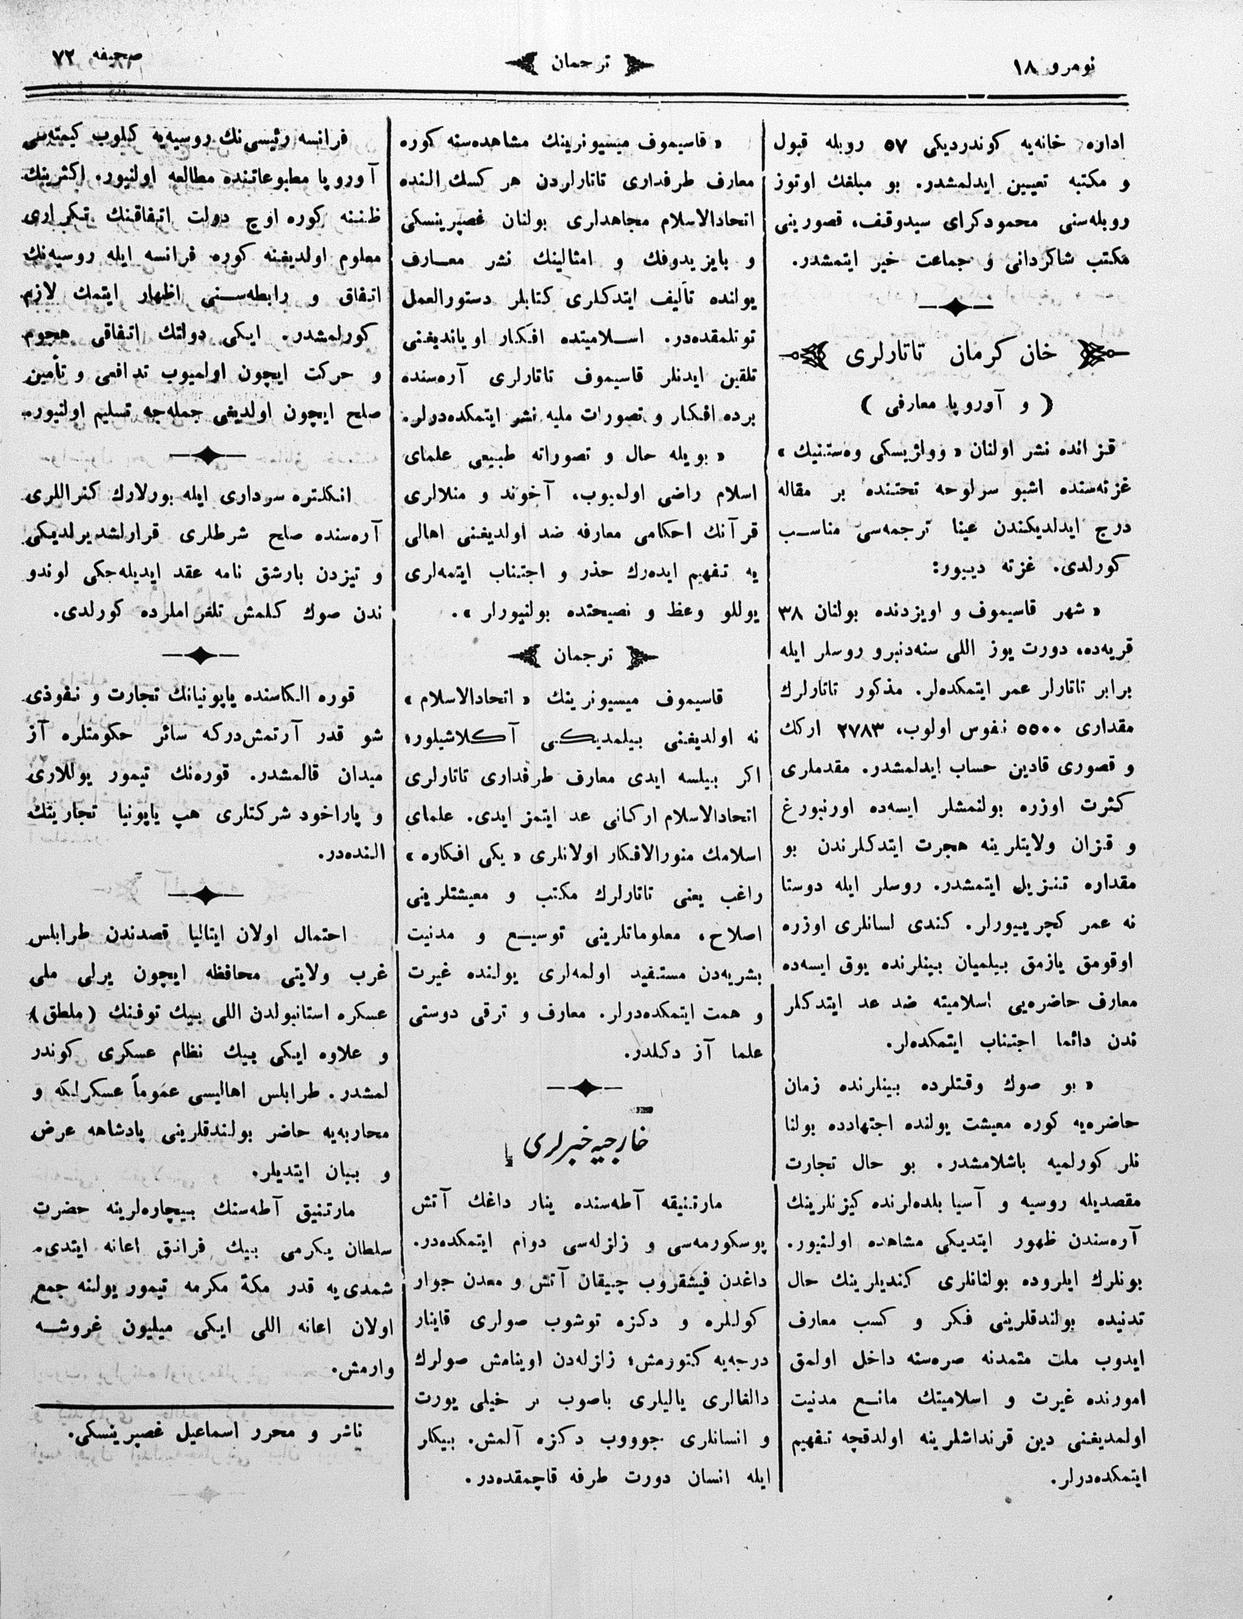 نومرو ۱۸
ترجمان
صحیفه ۷۲
اداره خانه‌یه كوندردیكی ۵۷ روبله قبول
و مكتبه تعیین ایدلمشدر. بو مبلغك اوتوز
روبله‌سنی محمودكرای سیدوقف، قصورینی
مكتب شاكردانی و جماعت خیر ایتمشدر.
خان كرمان تاتارلری
( و آوروپا معارفی )
قزانده نشر اولنان « وواژیسكی وه‌ستنیك »
غزته‌سنده اشبو سرلوحه تحتنده بر مقاله
درج ایدلدیكندن عینا ترجمه‌سی مناسب
كورلدی. غزته دییور:
« شهر قاسیموف و اویزدنده بولنان ۳۸
قریه‌ده، دورت یوز اللی سنه‌دنبرو روسلر ایله
برابر تاتارلر عمر ایتمكده‌لر. مذكور تاتارلرك
مقداری ۵۵۰۰ نفوس اولوب، ۲۷۸۳ ارکك
و قصوری قادین حساب ایدلمشدر. مقدملری
كثرت اوزره بولنمشلر ایسه‌ده اورنبورغ
و قزان ولایتلرینه هجرت ایتدكلرندن بو
مقداره تنزیل ایتمشدر. روسلر ایله دوستا
نه عمر كچریییورلر. كندی لسانلری اوزره
اوقومق یازمق بیلمیان بینلرنده یوق ایسه‌ده
معارف حاضره‌یی اسلامیته ضد عد ایتدكلر
ندن دائما اجتناب ایتمكده‌لر.
« بو صوك وقتلرده بینلرنده زمان
حاضره‌یه كوره معیشت یولنده اجتهادده بولنا
نلر كورلمیه باشلامشدر. بو حال تجارت
مقصدیله روسیه و آسیا بلده‌لرنده كیزنلرینك
آره‌سندن ظهور ایتدیكی مشاهده اولنیور.
بونلرك ایلروده بولنانلری كندیلرینك حال
تدنیده بولندقلرینی فكر و كسب معارف
ایدوب ملت متمدنه صره‌سنه داخل اولمق
امورنده غیرت و اسلامیتك مانع مدنیت
اولمدیغنی دین قرنداشلرینه اولدقچه تفهیم
ایتمكده‌درلر.
« قاسیموف میسیونرینك مشاهده‌سنه كوره
معارف طرفداری تاتارلردن هر كسك النده
اتحادالاسلام مجاهداری بولنان غصپرینسكی
و بایزیدوفك و امثالینك نشر معارف
یولنده تألیف ایتدكلری كتابلر دستورالعمل
توتلمقده‌در. اسلامیتده افكار اویاندیغنی
تلقین ایدنلر قاسیموف تاتارلری آره‌سنده
برده افكار و تصورات ملیه نشر ایتمكده‌درلر.
« بویله حال و تصوراته طبیعی علمای
اسلام راضی اولمیوب، آخوند و منلالری
قرآنك احكامی معارفه ضد اولدیغنی اهالی
یه تفهیم ایده‌رك حذر و اجتناب ایتمه‌لری
یوللو وعظ و نصیحتده بولنیورلر ».
ترجمان
قاسیموف میسیونرینك « اتحادالاسلام »
نه اولدیغنی بیلمدیكی آكلاشیلور؛
اكر بیلسه ایدی معارف طرفداری تاتارلری
اتحادالاسلام اركانی عد ایتمز ایدی. علمای
اسلامك منورالافكار اولانلری « یكی افكاره »
راغب یعنی تاتارلرك مكتب و معیشتلرینی
اصلاح، معلوماتلرینی توسیع و مدنیت
بشریه‌دن مستفید اولمه‌لری یولنده غیرت
و همت ایتمكده‌درلر. معارف و ترقی دوستی
علما آز دكلدر.
خارجیه خبرلری
مارتنیقه آطه‌سنده ینار داغك آتش
پوسكورمه‌سی و زلزله‌سی دوام ایتمكده‌در.
داغدن فیشقروب چیقان آتش و معدن جوار
كوللره و دكزه توشوب صولری قاینار
درجه‌یه كتورمش؛ زلزله‌دن اوینامش صولرك
دالغالری یالیلری باصوب بر خیلی یورت
و انسانلری جوووب دكزه آلمش. بیكلر
ایله انسان دورت طرفه قاچمقده‌در.
فرانسه رئیسی‌نك روسیه‌یه كیلوب كیمته‌سی
آوروپا مطبوعاتنده مطالعه اولنیور. اكثرینك
ظننه كوره اوچ دولت اتفاقینك تكراری
معلوم اولدیغنه كوره فرانسه ایله روسیه‌نك
اتفاق و رابطه‌سنی اظهار ایتمك لازم
كورلمشدر. ایكی دولتك اتفاقی هجوم
و حركت ایچون اولمیوب تدافعی و تأمین
صلح ایچون اولدیغی جمله‌جه تسلیم اولنیور.
انكلتره سرداری ایله بورلارك كنراللری
آره‌سنده صلح شرطلری قرارلشدیرلدیكی
و تیزدن بارشق نامه عقد ایدیله‌جكی لوندو
ندن صوك كلمش تلغراملرده كورلدی.
قوره الكاسنده یاپونیانك تجارت و نفوذی
شو قدر آرتمش‌دركه سائر حكومتلره آز
میدان قالمشدر. قوره‌نك تیمور یوللاری
و پاراخود شركتلری هپ یاپونیا تجارینك
النده‌در.
احتمال اولان ایتالیا قصدندن طرابلس
غرب ولایتی محافظه ایچون یرلی ملی
عسكره استانبولدن اللی بیك توفنك (ملطق)
و علاوه ایكی بیك نظام عسكری كوندر
لمشدر. طرابلس اهالیسی عموماً عسكرلكه و
محاربه‌یه حاضر بولندقلرینی پادشاهه عرض
و بیان ایتدیلر.
مارتنیق آطه‌سنك بیچاره‌لرینه حضرت
سلطان یكرمی بیك فرانق اعانه ایتدی.
شمدی‌یه قدر مكهٔ مكرمه تیمور یولنه جمع
اولان اعانه اللی ایكی میلیون غروشه
وارمش.
ناشر و محرر اسماعیل غصپرینسكی.